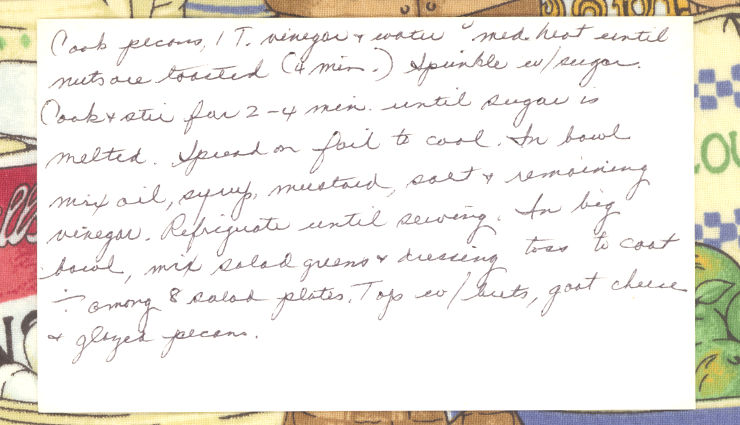 Cook pecans, 1 T. vinegar & water " med. heat until
nuts are toasted (4 min.) Sprinkle w/sugar.
Cook & stir for 2-4 min. until sugar is
melted. Spread on foil to cool. In bowl
mix oil, syrup, mustard, salt & remaining
vinegar. Refrigerate until serving. In big
bowl, mix salad greens & dressing toss to coat
÷ among 8 salad plates. Top w/beets, goat cheese
& glazed pecans.